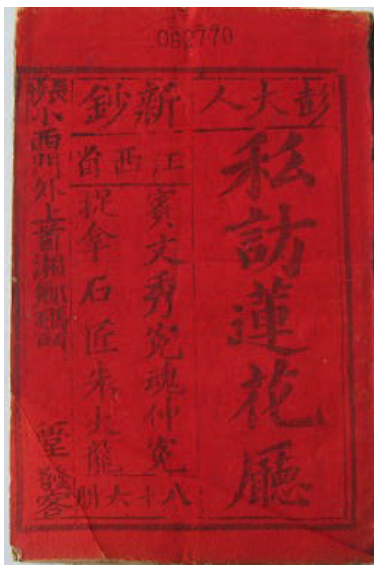 082770
彭大人
新鈔
私訪蓮花廳
江西省
賓文秀冤魂伸冤
捉拿石匠朱大龍
八十六州
小西門外上首湘鄉碼頭
堂發客